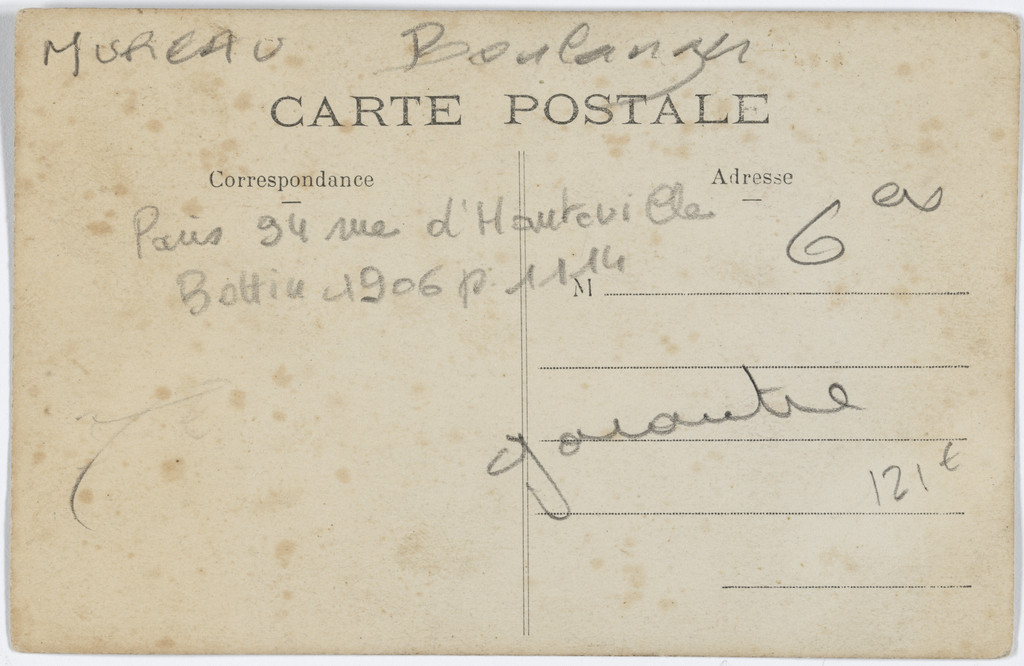 MUREAU Boulanger
CARTE POSTALE
Correspondance
Adresse
Paris 94 rue d'Hauteville
Bottin 1906 p. 1114
6
M
garantie
121 €